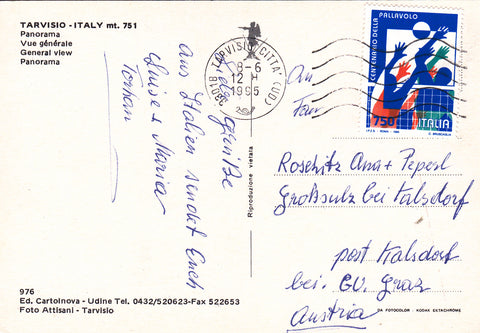 TARVISIO - ITALY mt. 751
Panorama
Vue générale
General view
Panorama
33018 TARVISIO CITTA' (UD)
8-6
12 H
1995
CENTENARIO DELLA PALLAVOLO
750
ITALIA
I.P.Z.S. - ROMA - 1995
Liebe grüße
aus Italien sendet Euch
Luise u Maria
An
Fam
Riproduzione vietata
Roschitz Ana + Peperl
Großsulz bei Kalsdorf
post Kalsdorf
bei. GU. Graz
Austria
976
Ed. Cartolnova - Udine Tel. 0432/520623-Fax 522653
Foto Attisani - Tarvisio
DA FOTOCOLOR - KODAK EKTACHROME